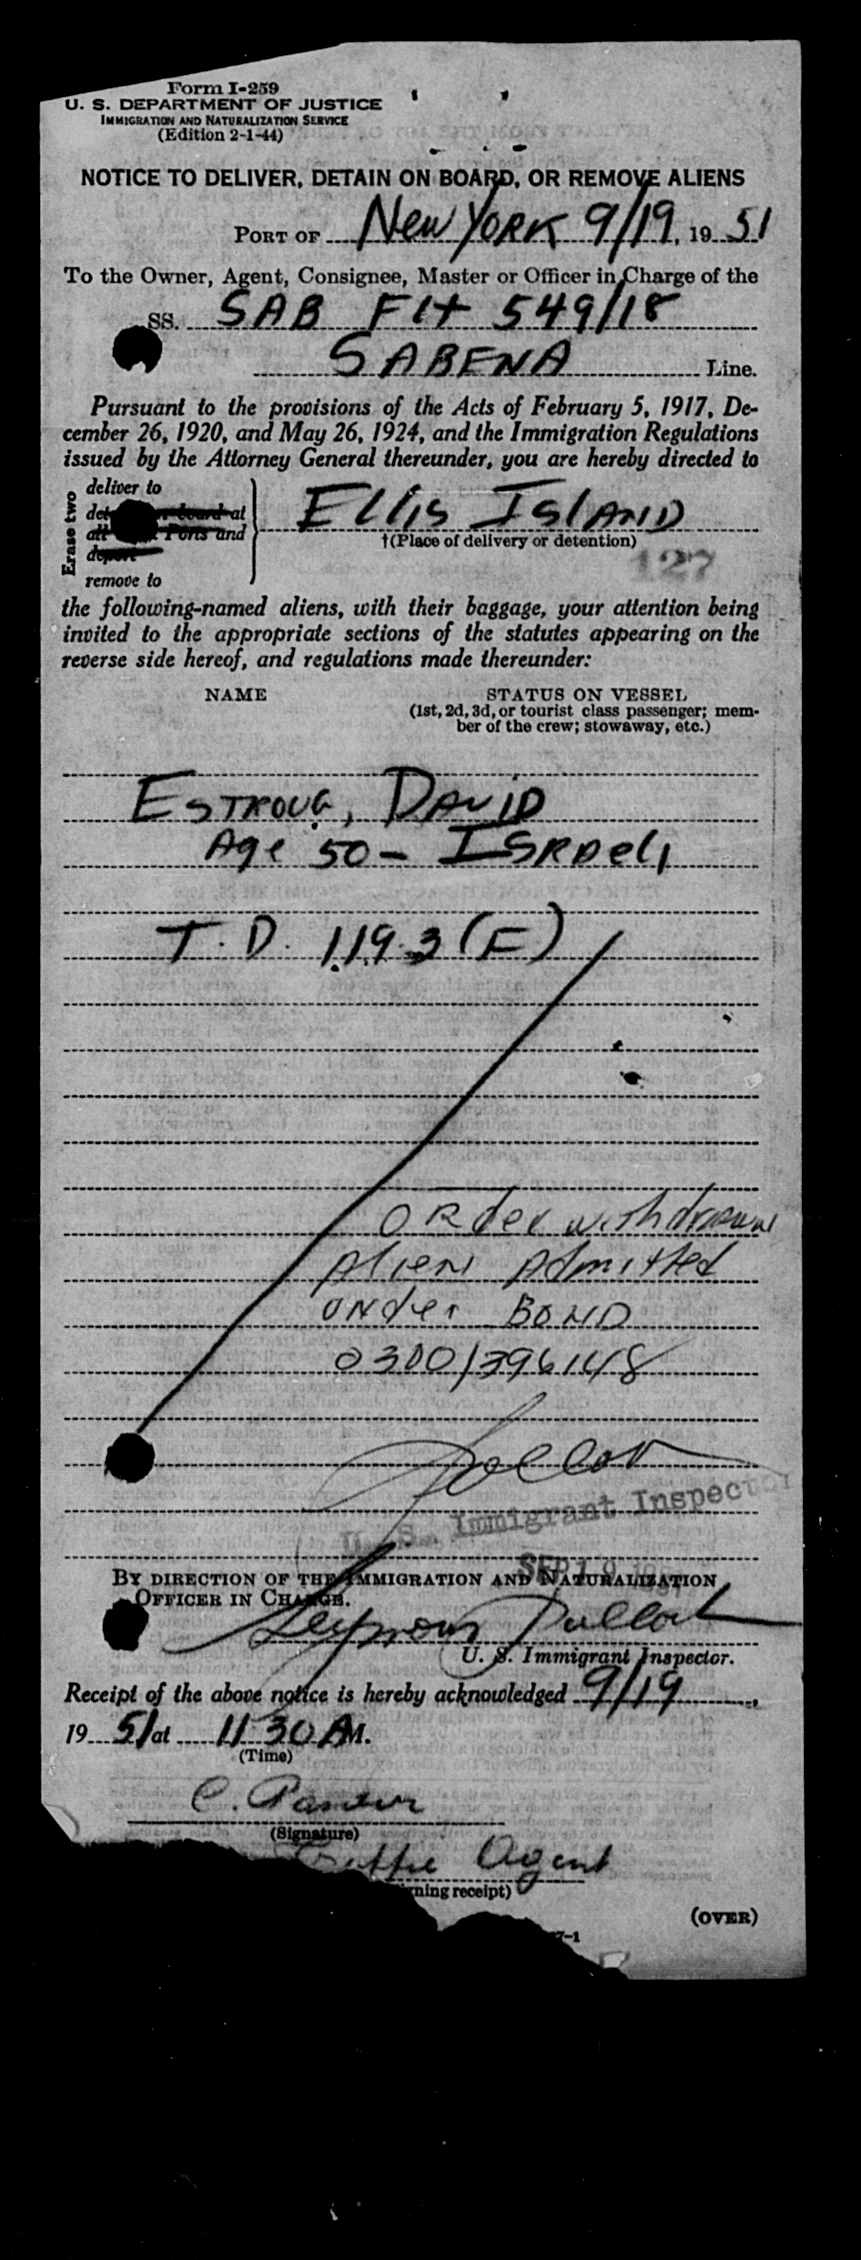 Form I-259
U. S. DEPARTMENT OF JUSTICE
IMMIGRATION AND NATURALIZATION SERVICE
(Edition 2-1-44)
NOTICE TO DELIVER, DETAIN ON BOARD, OR REMOVE ALIENS
PORT OF New York 9/19, 1951
To the Owner, Agent, Consignee, Master or Officer in Charge of the
SS. SAB Flt 549/18
SABENA Line.
Pursuant to the provisions of the Acts of February 5, 1917, De-
cember 26, 1920, and May 26, 1924, and the Immigration Regulations
issued by the Attorney General thereunder, you are hereby directed to
Erase two
deliver to
at
Ports and
deport
remove to
Ellis Island
†(Place of delivery or detention)
127
the following-named aliens, with their baggage, your attention being
invited to the appropriate sections of the statutes appearing on the
reverse side hereof, and regulations made thereunder:
NAME STATUS ON VESSEL
(1st, 2d, 3d, or tourist class passenger; mem-
ber of the crew; stowaway, etc.)
Estroug, David
Age 50 - Israeli
T.D. 1193 (F)
Order withdrawn
Alien Admitted
under BOND
0300/396148
U. S. Immigrant Inspector
SEP 19 1951
BY DIRECTION OF THE IMMIGRATION AND NATURALIZATION
OFFICER IN CHARGE.
Seymour Pollock
U. S. Immigrant Inspector.
Receipt of the above notice is hereby acknowledged 9/19,
1951 at 11 30 AM.
(Time)
C.
(Signature)
Agent
ning receipt)
(OVER)
7-1